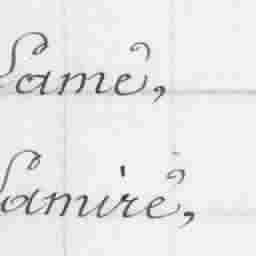 Lamé,
Lamiré,